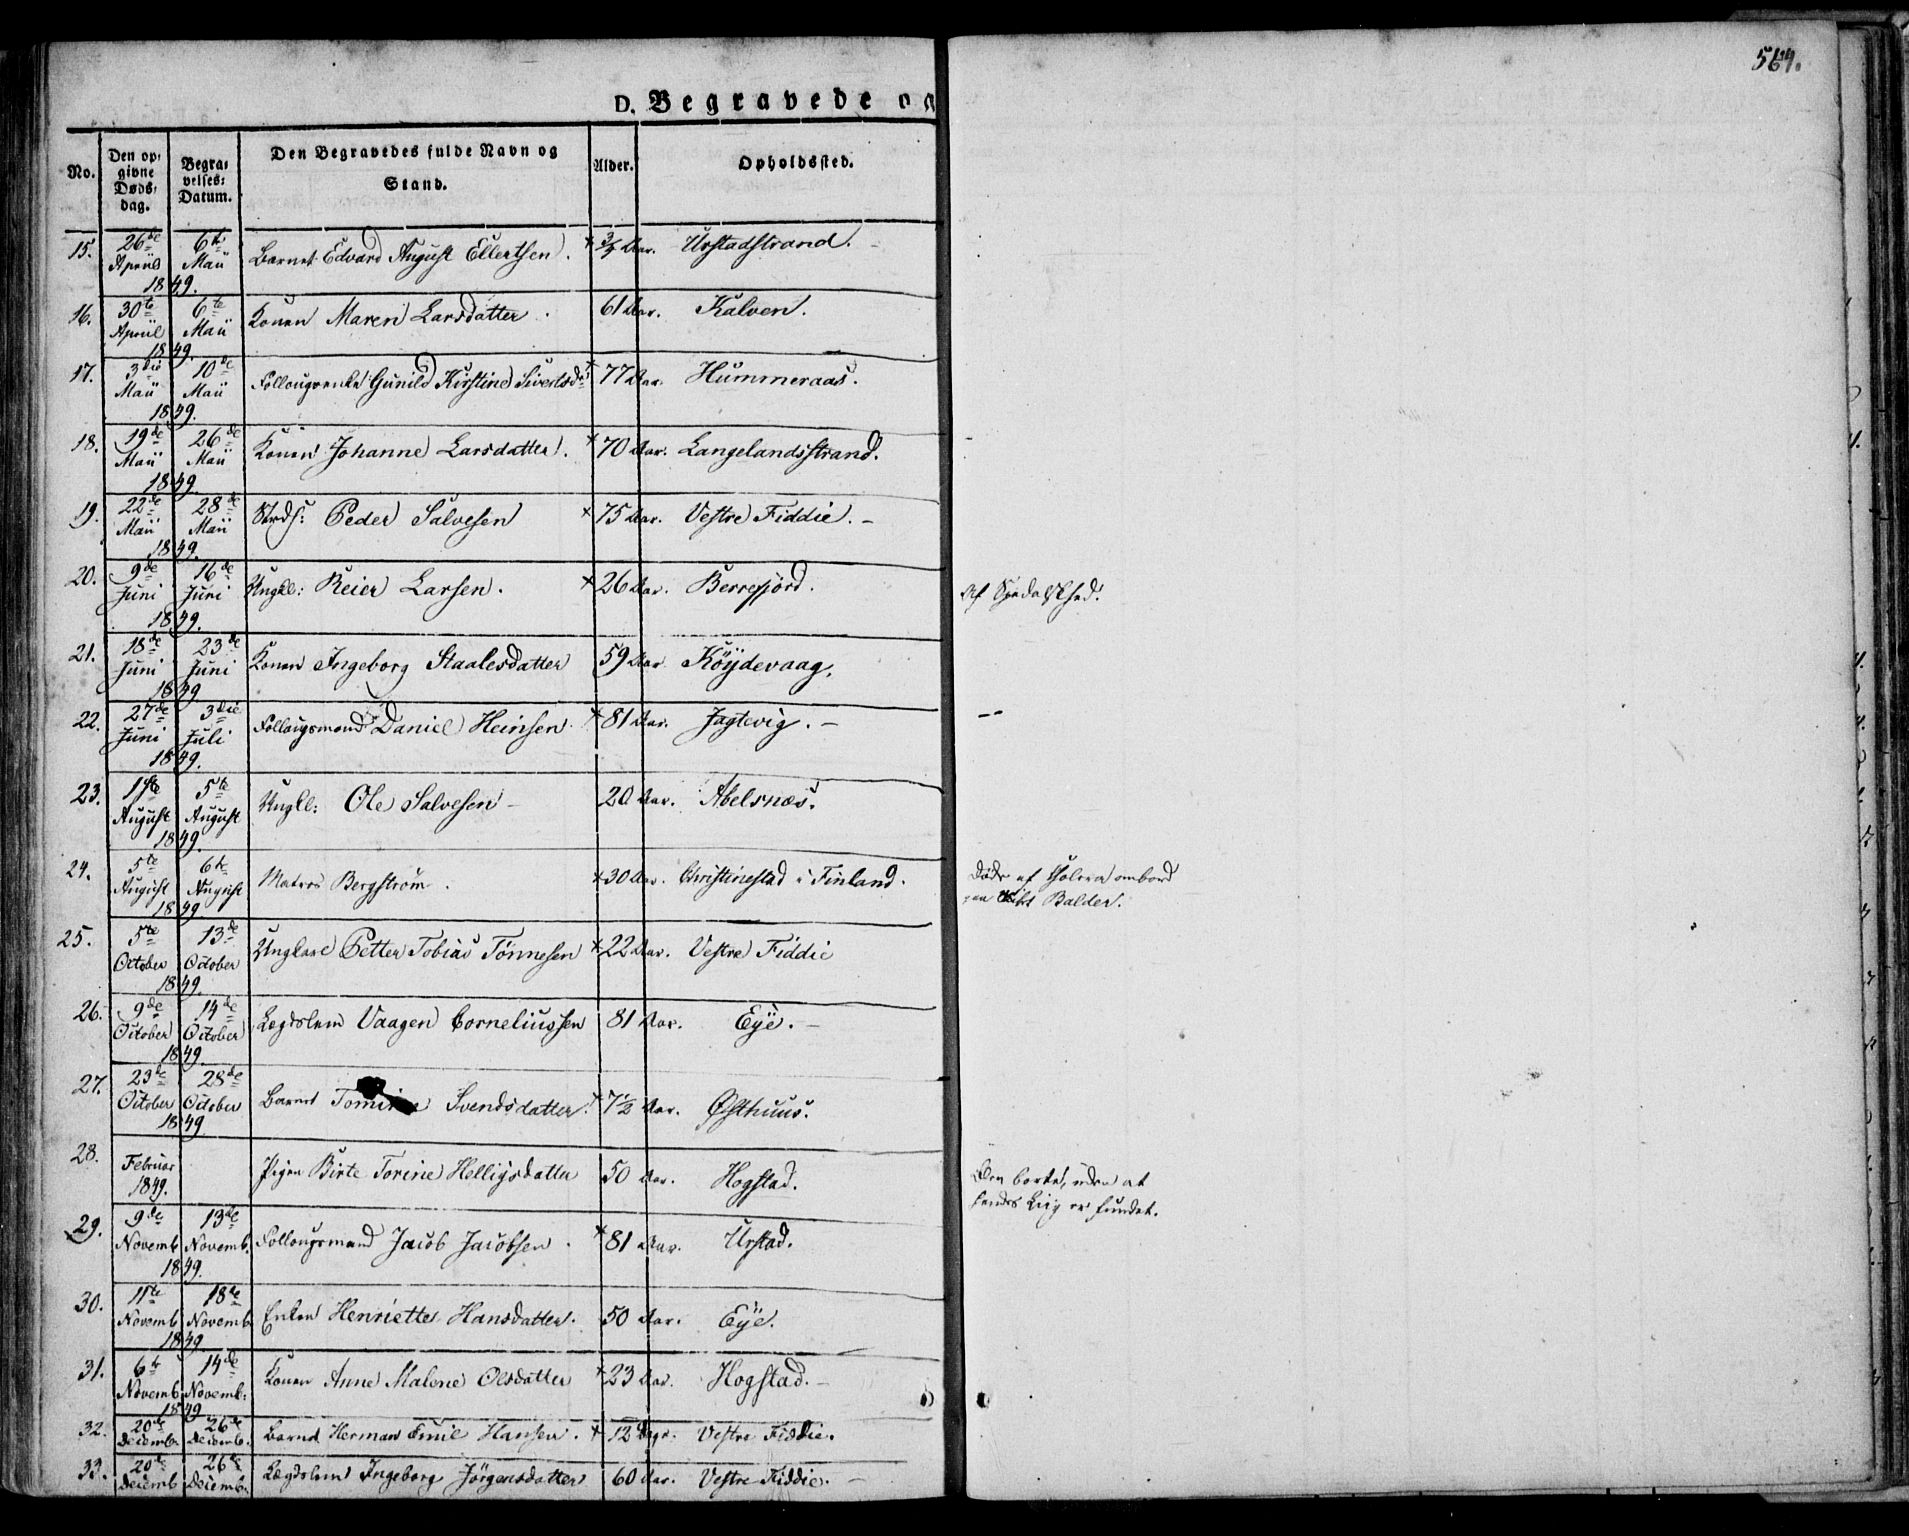 564.
D. Begravede og
No. Den opgivne Dødsdag. Begravelses-Datum. Den Begravedes fulde Navn og Stand. Alder. Opholdssted.
15. 26de Apriil 6te Maii 1849. Barnet Edvard August Ellertsen. ¾ Aar. Urstadstrand.
16. 30te Apriil 6te Maii 1849. Konen Maren Larsdatter. 61 Aar. Kalven.
17. 3die Maii 10de Maii 1849. Follougsenke Gunild Kirstine Sivertsd. 77 Aar. Hummeraas.
18. 19de Maii 26de Maii 1849. Konen Johanne Larsdatter. 70 Aar. Langelandsstrand.
19. 22de Maii 28de Maii 1849. Peder Salvesen 75 Aar. Vestre Fiddie.
20. 9de Juni 16de Juni 1849. Ungkl: Reier Larsen. 26 Aar. Berrefjord. Af Spedalskhed.
21. 18de Juni 23de Juni 1849 Konen Ingeborg Staalesdatter 59 Aar. Köÿdevaag.
22. 27de Juni 3die Juli 1849. Follougsmand Daniel Heinsen. 81 Aar. Jagtevig.
23. 1ste August 5te August 1849. Ungkl: Ole Salvesen 20 Aar. Abelsnæs.
24. 5te August 6te August 1849 Matros Bergstrøm. 30 Aar. Christinestad i Finland. Døde af Cholera ombord paa Balder.
25. 5te October 13de October 1849. Ungkarl Petter Tobias Tönnesen 22 Aar. Vestre Fiddie
26. 9de October 14de October 1849. Lægdslem Vaagen Corneliussen 81 Aar. Eÿe.
27. 23de October 28de October 1849 Barnet Tomine Svendsdatter. 7½ Aar. Østhuus.
28. Februar 1849. Pigen Birte Torine Helligsdatter 50 Aar. Hogstad. borte, uden at hendes Liig er fundet.
29. 9de Novemb. 13de Novemb. 1849. Follougsmand Jacob Jacobsen. 81 Aar. Urstad.
30. 11te Novemb. 18de Novemb. 1849 Enken Henriette Hansdatter. 50 Aar. Eÿe.
31. 6te Novemb. 14de Novemb: 1849 Konen Anne Malene Olsdatter 23 Aar. Hogstad.
32. 20de Decemb. 26de Decemb. Barnet Herman Emil Hansen. 12 Dage. Vestre Fiddie.
33. 20de Decemb 26de Decemb. Lægdslem Ingeborg Jörgensdatter 60 Aar. Vestre Fiddie.